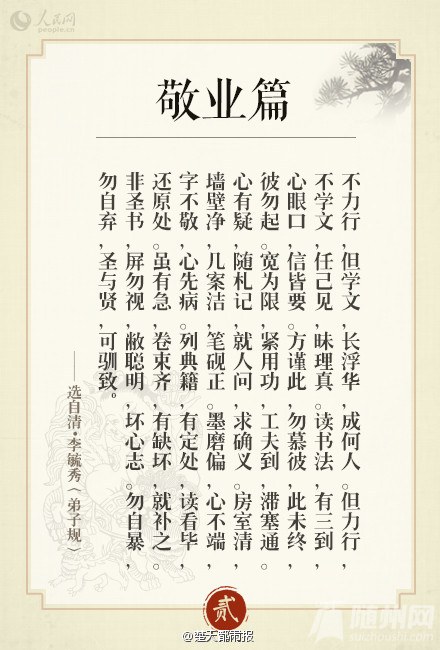 人民网
people.cn
敬业篇
不力行,但学文,长浮华,成何人。但力行,
不学文,任己见,昧理真。读书法,有三到,
心眼口,信皆要。方谨此,勿慕彼,此未终,
彼勿起。宽为限,紧用功,工夫到,滞塞通。
心有疑,随札记,就人问,求确义。房室清,
墙壁净,几案洁,笔砚正。墨磨偏,心不端,
字不敬,心先病。列典籍,有定处,读看毕,
还原处。虽有急,卷束齐,有缺坏,就补之。
非圣书,屏勿视,敝聪明,坏心志。勿自暴,
勿自弃,圣与贤,可驯致。
——选自清·李毓秀《弟子规》
贰
@楚天都市报
随州网